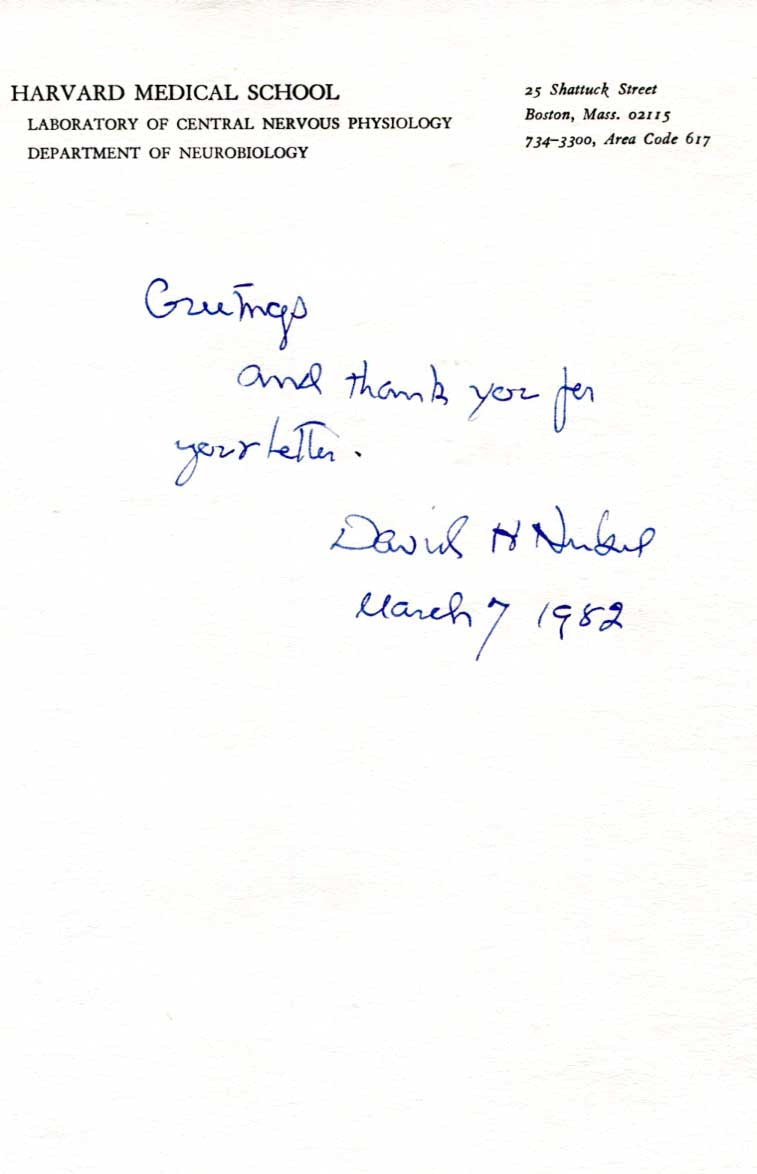 HARVARD MEDICAL SCHOOL
LABORATORY OF CENTRAL NERVOUS PHYSIOLOGY
DEPARTMENT OF NEUROBIOLOGY
25 Shattuck Street
Boston, Mass. 02115
734-3300, Area Code 617
Greetings
and thank you for
your letter.
David H Hubel
March 7 1982